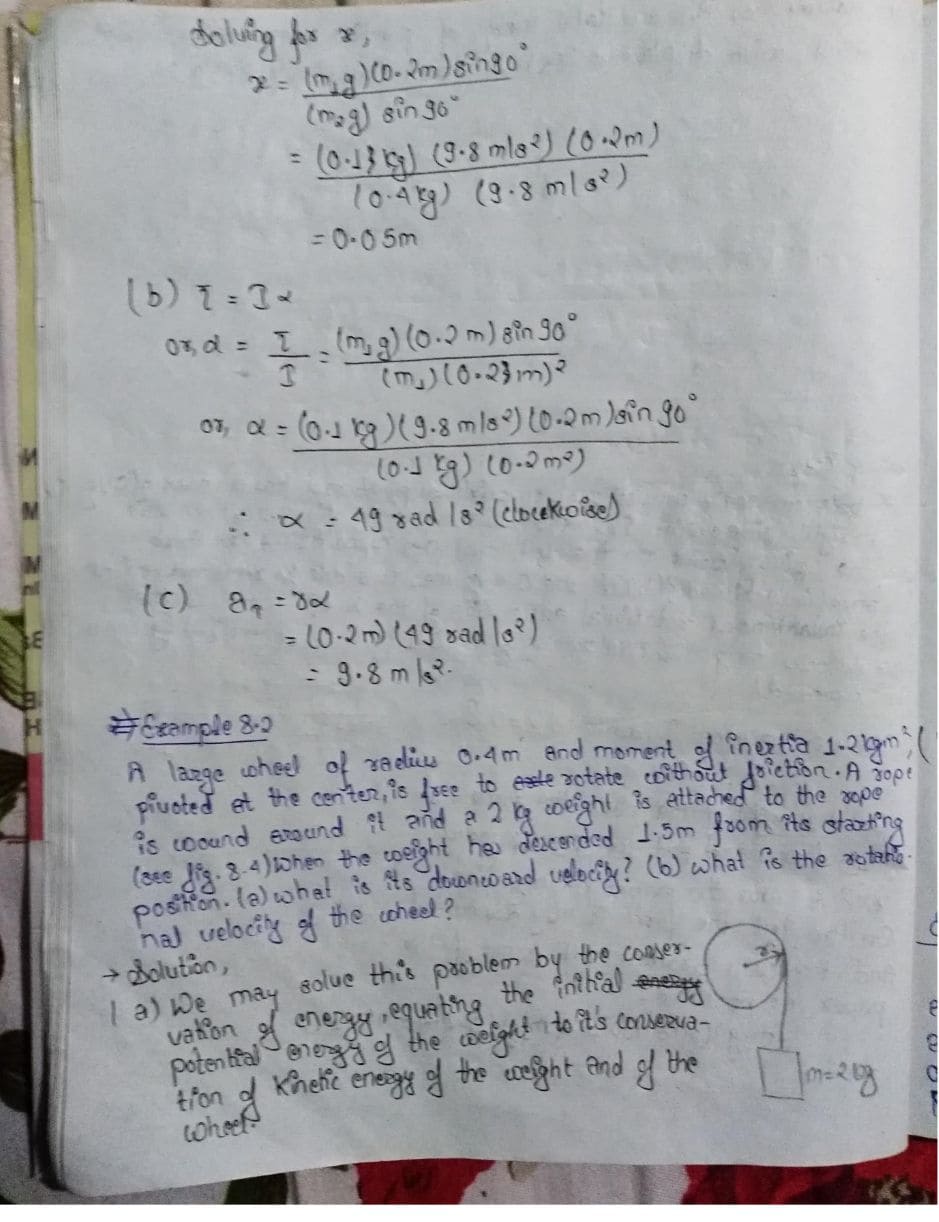 Solving for x,
x = (m₁g)(0.2m)sin90°
(m₂g) sin 90°
= (0.1 kg) (9.8 m/s²) (0.2m)
(0.4 kg) (9.8 m/s²)
= 0.05m
(b) τ = Iα
or, α = τ/I = (m₁g)(0.2 m) sin 90°
(m₁)(0.2 m)²
or, α = (0.1 kg)(9.8 m/s²)(0.2m)sin 90°
(0.1 kg) (0.2m²)
∴ α = 49 rad/s² (clockwise)
(c) a = rα
= (0.2m) (49 rad/s²)
= 9.8 m/s².
# Example 8.2
A large wheel of radius 0.4m and moment of inertia 1.2 kgm²,
pivoted at the center, is free to rotate without friction. A rope
is wound around it and a 2 kg weight is attached to the rope
(see fig. 8.4) when the weight has descended 1.5m from its starting
position. (a) what is its downward velocity? (b) what is the rotatio-
nal velocity of the wheel?
→ Solution,
(a) We may solve this problem by the conser-
vation of energy, equating the initial energy
potential energy of the weight to it's conserva-
tion of kinetic energy of the weight and of the
wheel.
m=2kg